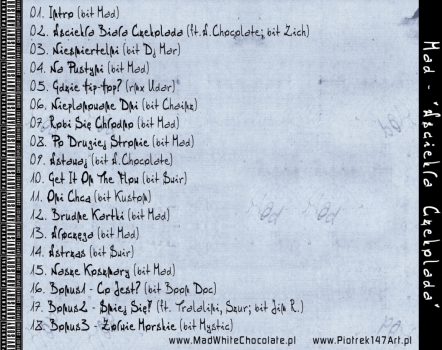 01. Intro (bit Mad)
02. Wściekła Biała Czekolada (ft. W.Chocolate; bit Zich)
03. Nieśmiertelni (bit Dj Mar)
04. Na Pustyni (bit Mad)
05. Gdzie Hip-Hop? (rmx Udar)
06. Nieplanowane Dni (bit Chainz)
07. Robi Się Chłodno (bit Mad)
08. Po Drugiej Stronie (bit Mad)
09. Wstawaj (bit W.Chocolate)
10. Get It On The Flow (bit Suir)
11. Oni Chcą (bit Kustom)
12. Brudne Kartki (bit Mad)
13. (bit Mad)
14. Wstrząs (bit Suir)
15. Nasze Koszmary (bit Mad)
16. Bonus1 - Co Jest? (bit Boom Doc)
17. Bonus2 - Śmiej Się! (ft. bit Jim R.)
18. Bonus3 - Żółwie Morskie (bit Mystic)
www.MadWhiteChocolate.pl www.Piotrek147Art.pl
Mad - 'Wściekła Czekolada'